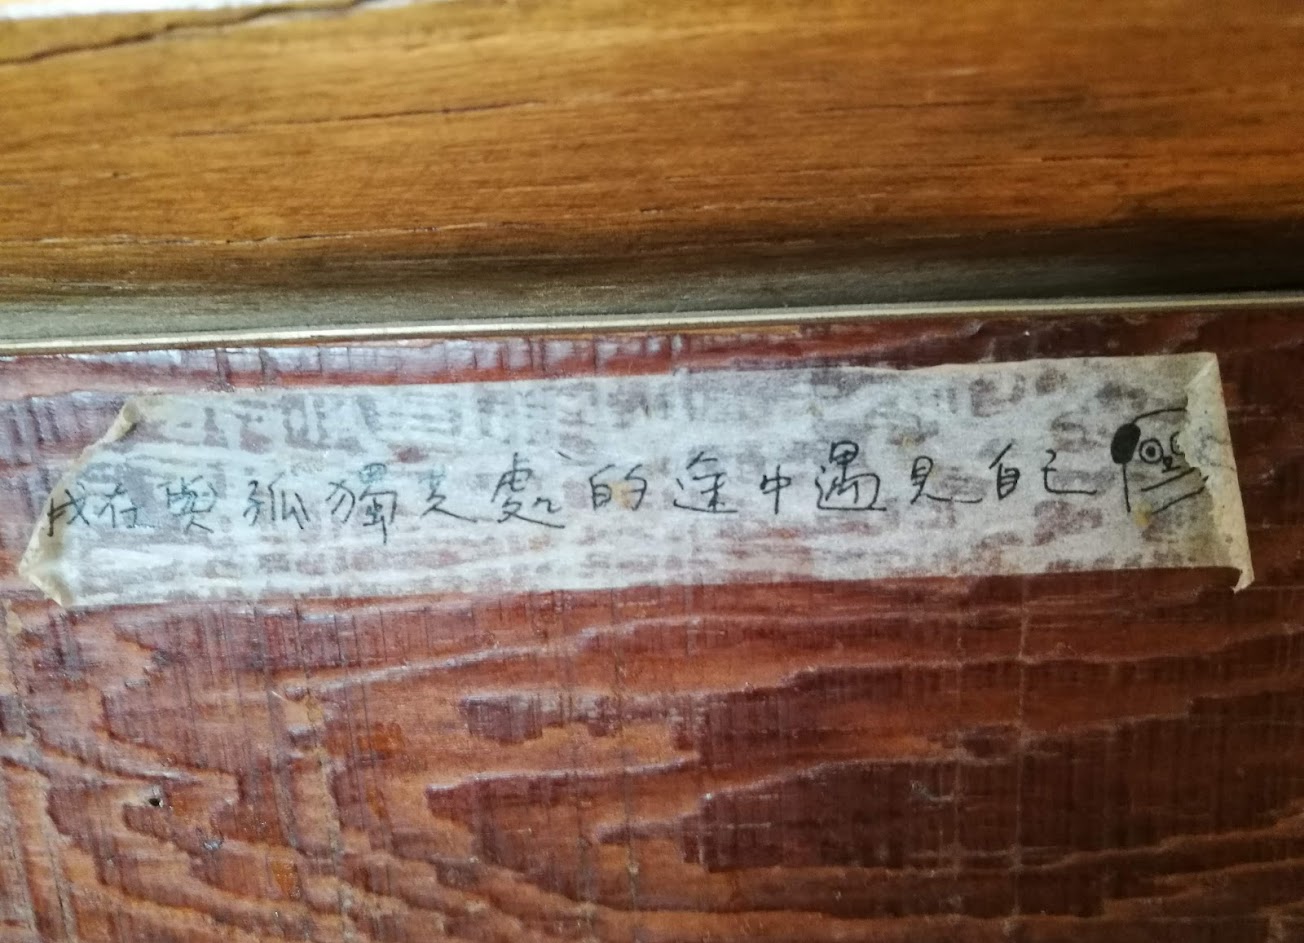 我在與孤獨共處的途中遇見自己